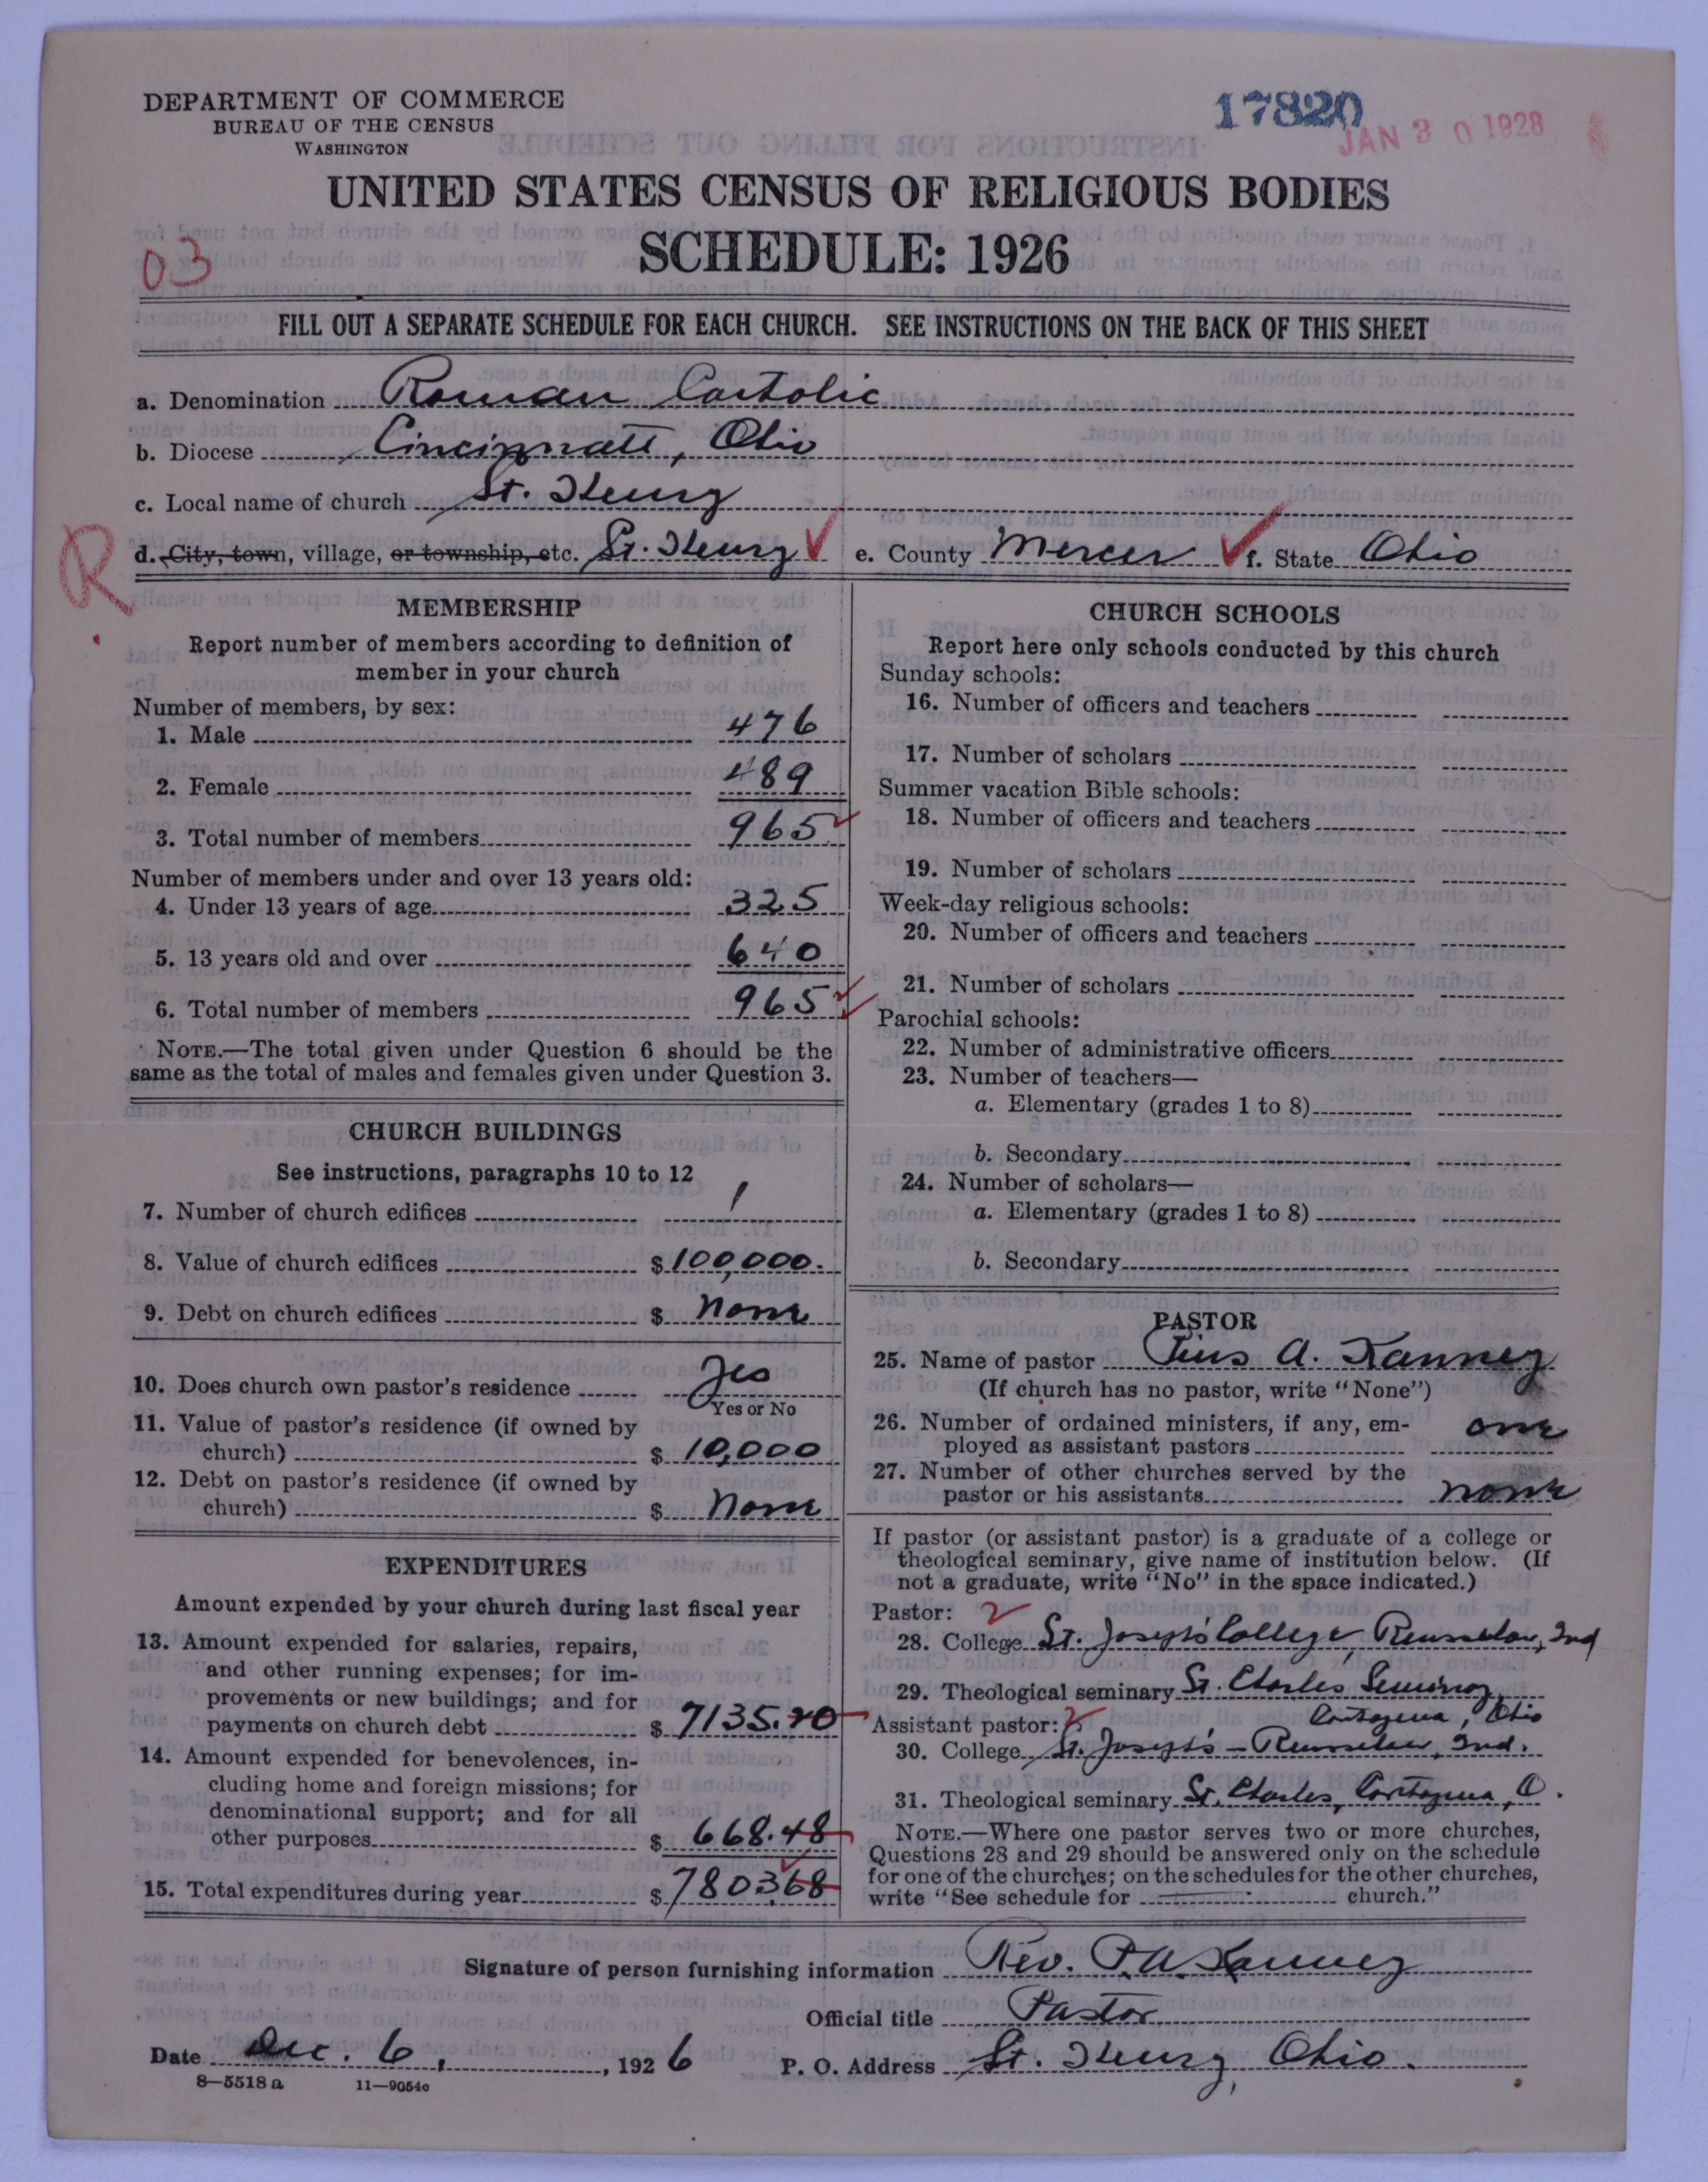 DEPARTMENT OF COMMERCE
BUREAU OF THE CENSUS
WASHINGTON
17820
JAN 30 1928
UNITED STATES CENSUS OF RELIGIOUS BODIES
SCHEDULE: 1926
03
FILL OUT A SEPARATE SCHEDULE FOR EACH CHURCH. SEE INSTRUCTIONS ON THE BACK OF THIS SHEET
a. Denomination Roman Catholic
b. Diocese Cincinnati, Ohio
c. Local name of church St. Henry
R
d. City, town, village, or township, etc. St. Henry e. County Mercer f. State Ohio
MEMBERSHIP
Report number of members according to definition of
member in your church
Number of members, by sex:
1. Male 476
2. Female 489
3. Total number of members 965
Number of members under and over 13 years old:
4. Under 13 years of age 325
5. 13 years old and over 640
6. Total number of members 965
NOTE.—The total given under Question 6 should be the
same as the total of males and females given under Question 3.
CHURCH BUILDINGS
See instructions, paragraphs 10 to 12
7. Number of church edifices 1
8. Value of church edifices $ 100,000.
9. Debt on church edifices $ None
10. Does church own pastor's residence Yes
Yes or No
11. Value of pastor's residence (if owned by
church) $ 10,000
12. Debt on pastor's residence (if owned by
church) $ None
EXPENDITURES
Amount expended by your church during last fiscal year
13. Amount expended for salaries, repairs,
and other running expenses; for im-
provements or new buildings; and for
payments on church debt $ 7135.20
14. Amount expended for benevolences, in-
cluding home and foreign missions; for
denominational support; and for all
other purposes $ 668.48
15. Total expenditures during year $ 7803.68
CHURCH SCHOOLS
Report here only schools conducted by this church
Sunday schools:
16. Number of officers and teachers
17. Number of scholars
Summer vacation Bible schools:
18. Number of officers and teachers
19. Number of scholars
Week-day religious schools:
20. Number of officers and teachers
21. Number of scholars
Parochial schools:
22. Number of administrative officers
23. Number of teachers—
a. Elementary (grades 1 to 8)
b. Secondary
24. Number of scholars—
a. Elementary (grades 1 to 8)
b. Secondary
PASTOR
25. Name of pastor A.
(If church has no pastor, write "None")
26. Number of ordained ministers, if any, em-
ployed as assistant pastors one
27. Number of other churches served by the
pastor or his assistants none
If pastor (or assistant pastor) is a graduate of a college or
theological seminary, give name of institution below. (If
not a graduate, write "No" in the space indicated.)
Pastor: 2
28. College St. Joseph's College, Rensselaer, Ind
29. Theological seminary St. Charles Seminary,
Carthagena, Ohio
Assistant pastor: 2
30. College St. Joseph's - Rensselaer, Ind.
31. Theological seminary St. Charles, Carthagena, O.
NOTE.—Where one pastor serves two or more churches,
Questions 28 and 29 should be answered only on the schedule
for one of the churches; on the schedules for the other churches,
write "See schedule for church."
Signature of person furnishing information Rev. P. A.
Official title Pastor
Date Dec. 6, 1926 P. O. Address St. Henry, Ohio.
8—5518 a 11—9054c